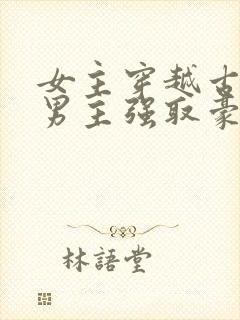 女主穿越古
男主强取豪
林語堂